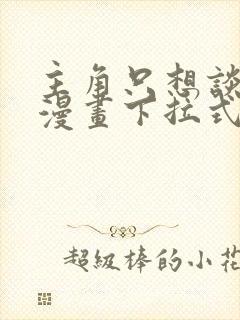 主角只想談
漫畫下拉式
超級棒的小花